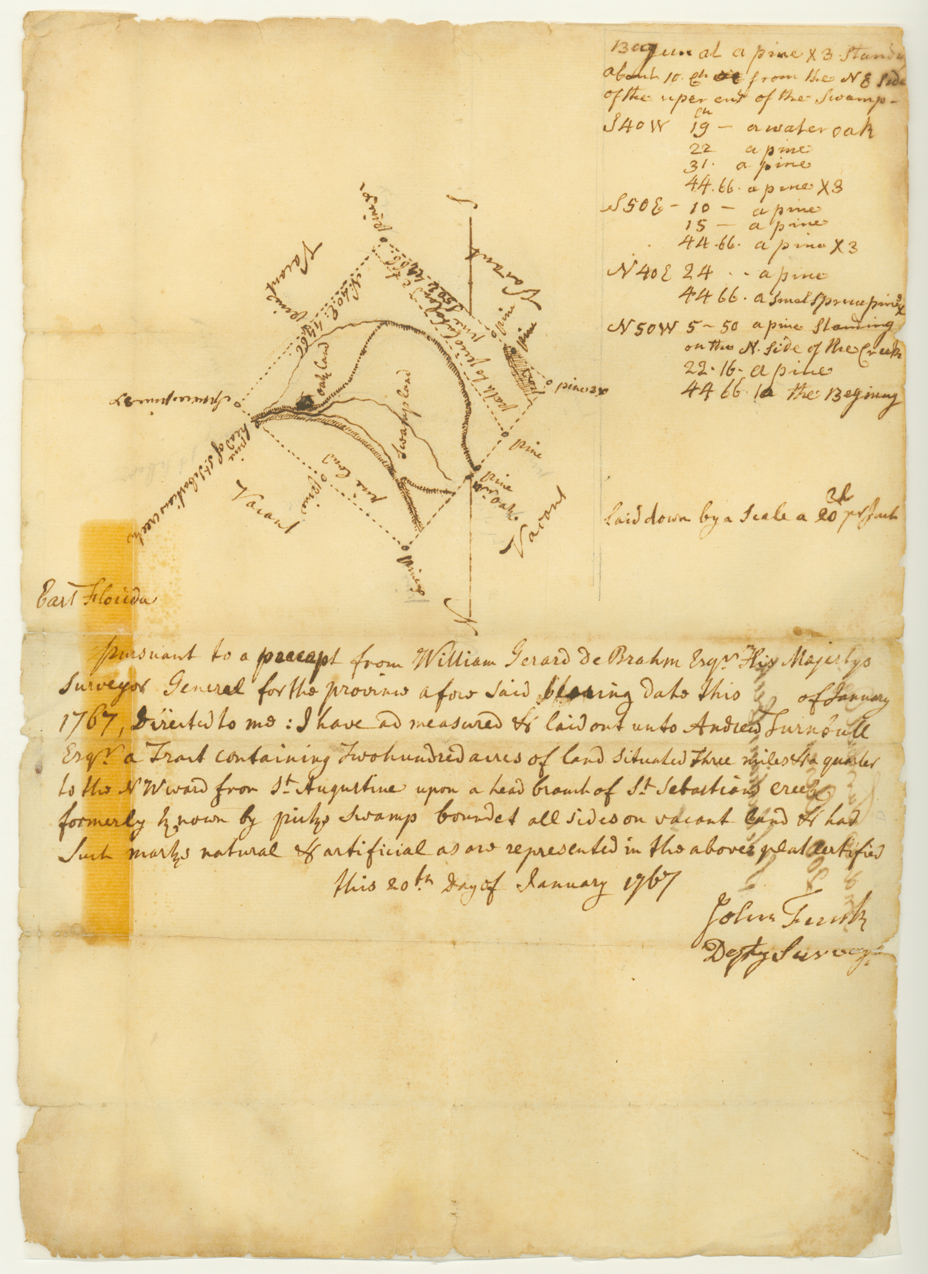 Begun at a pine X3 Stand
about 10 ch from the NE Side
of the uper end of the Swamp -
ch
S40W 19 - a water oak
22 a pine
31. a pine
44.66. a pine X3
S50E - 10 - a pine
15 - a pine
44.66. a pine X3
N40E 24 .. a pine
44 66. a Smal Spruce pine X
N50W 5-50 a pine Standing
on the N. Side of the Creek
22-16- a pine
44 66 to the Begining
Laid down by a Scale a 20 ch pr Inch
S
pine
Vacant
Vacant
pine
N40E 4466
S50E 4466
path to
pine
pine
pine
Oak land
Swampy land
pine
pine
head of St Sebastians creek
pine
pine land
Vacant
pine
pine
W: oak
Vacant
pine
N
East Florida
Pursuant to a precept from William Gerard de Brahm Esqr. His Majestys
Surveyor General for the province afore Said bearing date this of January
1767, Directed to me: I have admeasured & laid out unto Andrew Turnbull
Esqr. a Tract containing Two hundred acres of land Situated Three miles & a quarter
to the NWward from St. Augustine upon a head branch of St Sebastians creek
formerly known by Swamp boundet all sides on vacant land & had
Such marks natural & artificial as are represented in the above plat certified
this 20th Day of January 1767
John Funk
Depty Surveyr